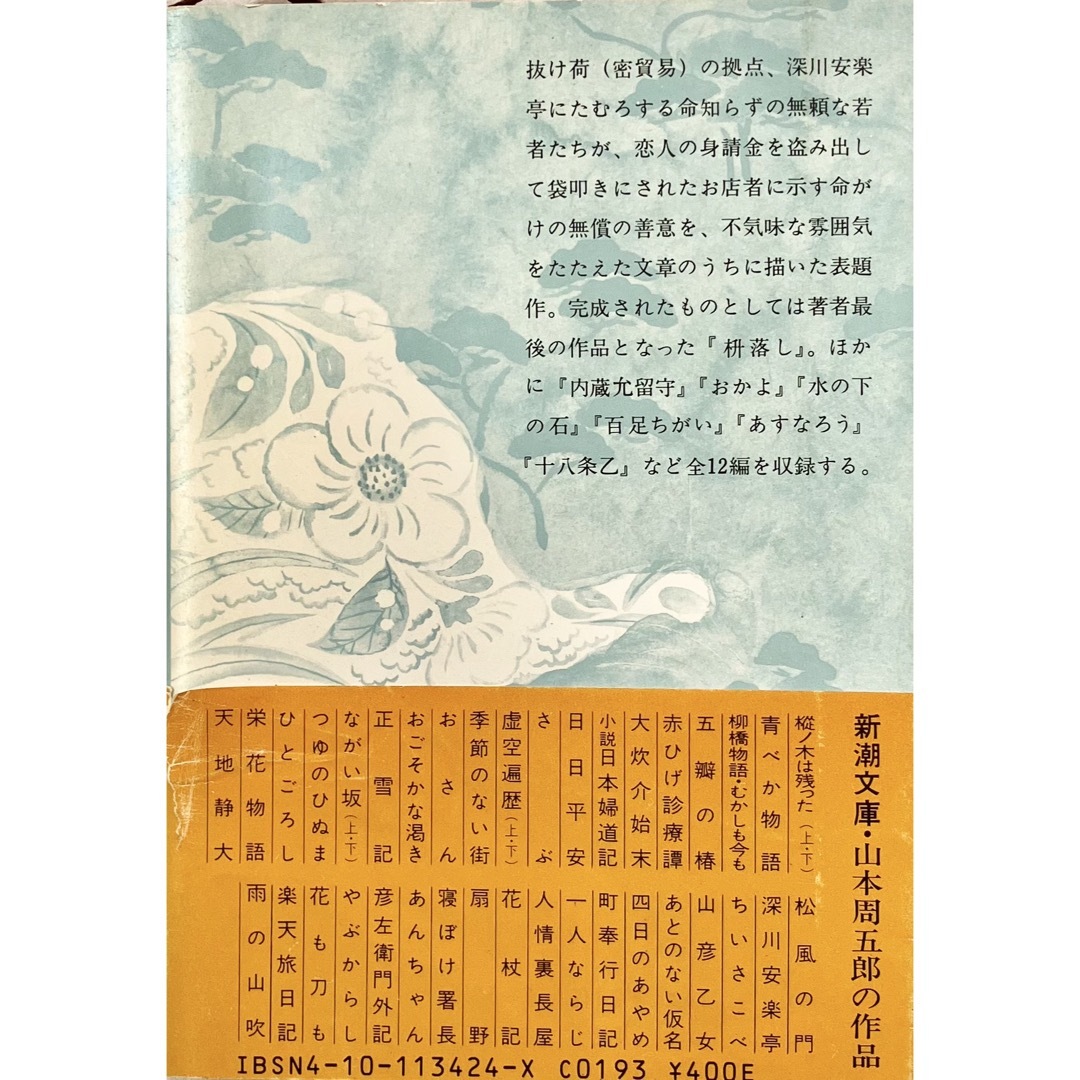 抜け荷（密貿易）の拠点、深川安楽
亭にたむろする命知らずの無頼な若
者たちが、恋人の身請金を盗み出し
て袋叩きにされたお店者に示す命が
けの無償の善意を、不気味な雰囲気
をたたえた文章のうちに描いた表題
作。完成されたものとしては著者最
後の作品となった『枡落し』。ほか
に『内蔵允留守』『おかよ』『水の下
の石』『百足ちがい』『あすなろう』
『十八条乙』など全12編を収録する。
新潮文庫・山本周五郎の作品
樅ノ木は残った（上・下）
青べか物語
柳橋物語・むかしも今も
五瓣の椿
赤ひげ診療譚
大炊介始末
小説日本婦道記
日日平安
さぶ
虚空遍歴（上・下）
季節のない街
おさん
おごそかな渇き
正雪記
ながい坂（上・下）
つゆのひぬま
ひとごろし
栄花物語
天地静大
松風の門
深川安楽亭
ちいさこべ
山彦乙女
あとのない仮名
四日のあやめ
町奉行日記
一人ならじ
人情裏長屋
花杖記
扇野
寝ぼけ署長
あんちゃん
彦左衛門外記
やぶからし
花も刀も
楽天旅日記
雨の山吹
IBSN4-10-113424-X C0193 ¥400E